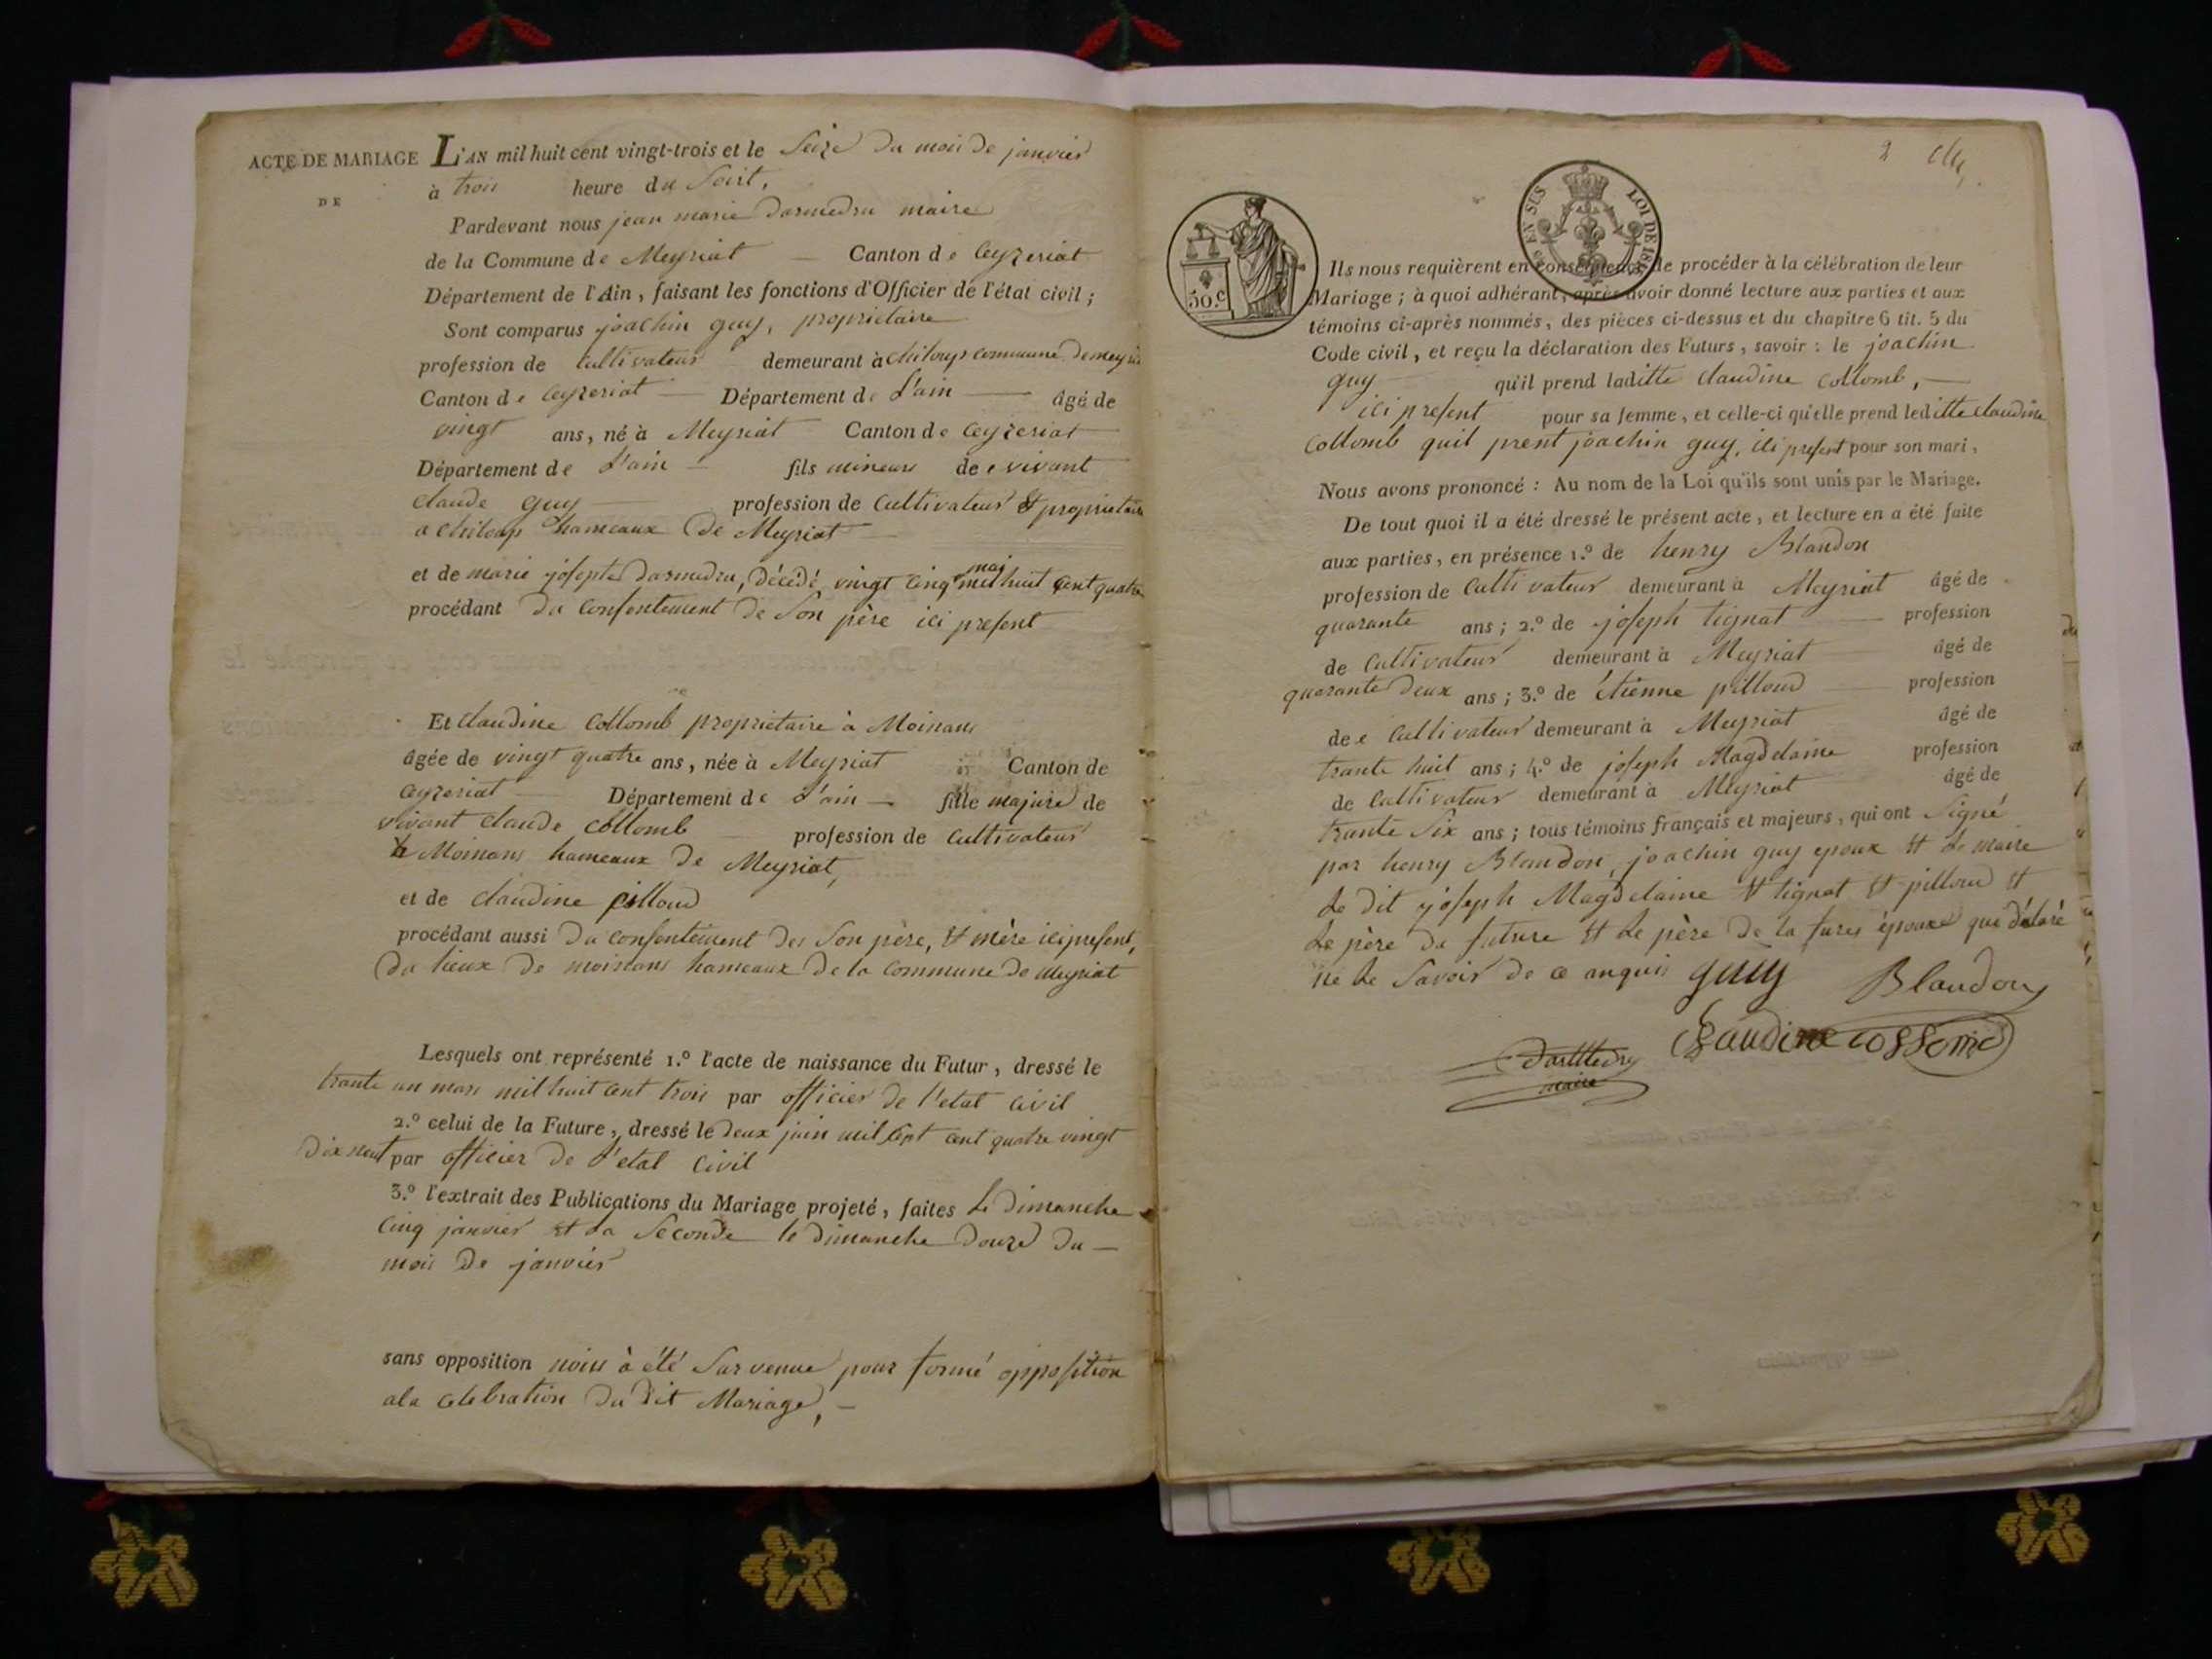 ACTE DE MARIAGE L'AN mil huit cent vingt-trois et le Seize du mois de janvier
DE à trois heure du Soirt,
Pardevant nous jean marie darmedru maire
de la Commune de Meyriat — Canton de Ceyzeriat
Département de l'Ain, faisant les fonctions d'Officier de l'état civil;
Sont comparus joachin guy, proprietaire
profession de Cultivateur demeurant à Chiloup commune de meyriat
Canton de Ceyzeriat — Département de L'ain — âgé de
vingt ans, né à Meyriat Canton de Ceyzeriat
Département de L'ain — fils mineure de vivant
Claude guy — profession de Cultivateur & proprietaire
a Chiloup hameaux De Meyriat —
et de marie josepte darmedru, décédé vingt cinq mai mil huit cent quatre
procédant du Consentement de Son père ici present
Et Claudine Collomb proprietaire à Moinans
âgée de vingt quatre ans, née à Meyriat Canton de
Ceyzeriat — Département de L'ain — fille majure de
vivant Claude Collomb — profession de Cultivateur
a Moinans hameaux de Meyriat,
et de Claudine pilloud
procédant aussi du consentement des Son père, & mère ici present,
du lieux de moinans hameaux de la Commune de Meyriat
Lesquels ont représenté 1.º l'acte de naissance du Futur, dressé le
trante un mars mil huit cent trois par officier de l'etat Civil
2.º celui de la Future, dressé le deux juin mil sept cent quatre vingt
dix neuf par officier de L'etat Civil
3.º l'extrait des Publications du Mariage projeté, faites Le Dimanche
Cinq janvier et La Seconde le dimanche douze du —
mois de janvier
sans opposition à été Survenue pour formé opposition
ala Celebration du dit Mariage, —
2
EN SUS LOI DE 1816
50.c
Ils nous requièrent en conséquence de procéder à la célébration de leur
Mariage; à quoi adhérant, après avoir donné lecture aux parties et aux
témoins ci-après nommés, des pièces ci-dessus et du chapitre 6 tit. 5 du
Code civil, et reçu la déclaration des Futurs, savoir: le joachin
guy — qu'il prend laditte Claudine Collomb, —
ici present pour sa femme, et celle-ci qu'elle prend leditte Claudine
Collomb quil prent joachin guy, ici present pour son mari,
Nous avons prononcé: Au nom de la Loi qu'ils sont unis par le Mariage.
De tout quoi il a été dressé le présent acte, et lecture en a été faite
aux parties, en présence 1.º de henry Blandon
profession de Cultivateur demeurant à Meyriat âgé de
quarante ans; 2.º de joseph tignat — profession
de Cultivateur demeurant à Meyriat — âgé de
quarante deux ans; 3.º de étienne pilloud — profession
de Cultivateur demeurant à Meyriat âgé de
trante huit ans; 4.º de joseph Magdelaine profession
de Cultivateur demeurant à Meyriat âgé de
trante Six ans; tous témoins français et majeurs, qui ont Signé
par henry Blandon, joachin guy epoux & Le maire
Le dit joseph Magdelaine & tignat & pilloud &
Le père du future & Le père de la epouxe que déclaré
ne Le Savoir de ce anquis guy Blandon
Claudine Collomb
Darmedru
maire